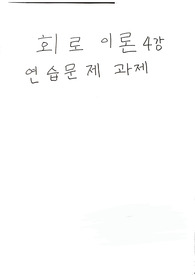 회로 이론 4강
연습문제 과제